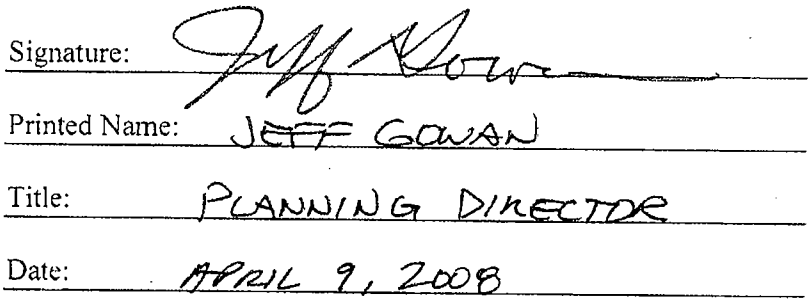 Signature: Jeff Gowan
Printed Name: JEFF GOWAN
Title: PLANNING DIRECTOR
Date: APRIL 9, 2008